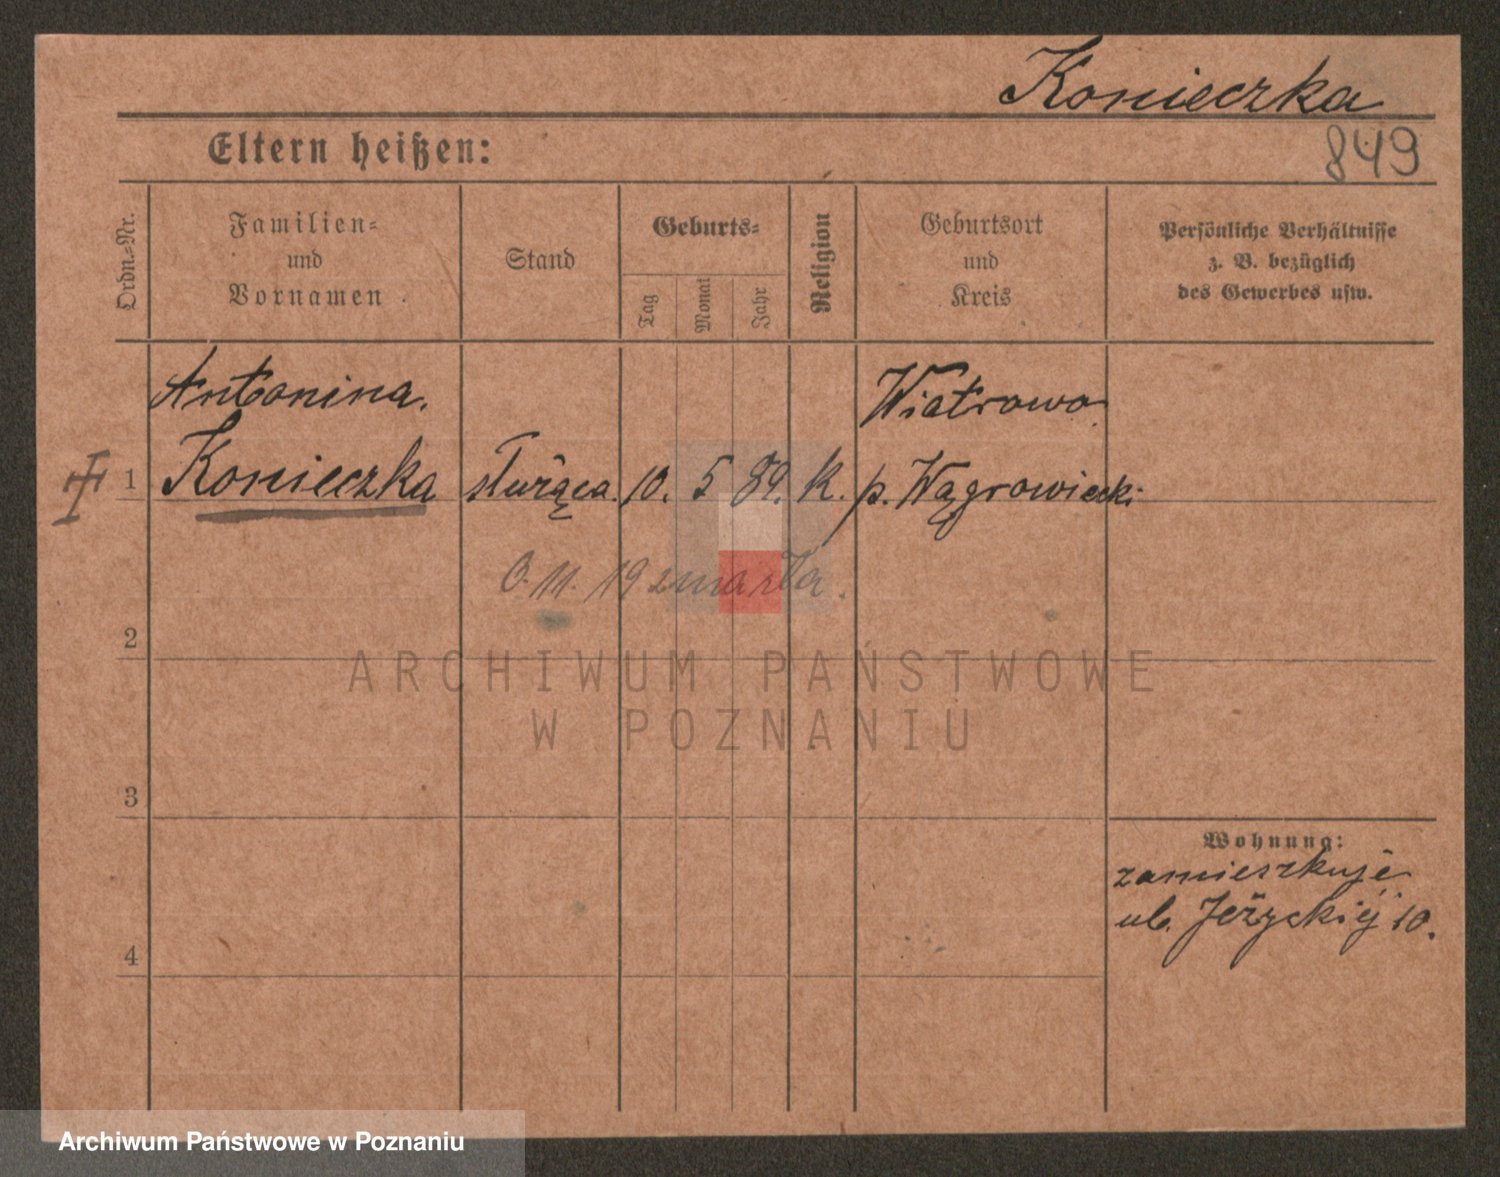 Konieczka
849
Eltern heißen:
Ordn.-Nr.
Familien-
und
Vornamen
Stand
Geburts-
Tag
Monat
Jahr
Religion
Geburtsort
und
Kreis
Persönliche Verhältnisse
z. B. bezüglich
des Gewerbes usw.
Antonina.
Wiatrowo
1 Konieczka służąca. 10. 5 89. k. p. Wągrowiecki
11. 19 zmarła.
2
ARCHIWUM PAŃSTWOWE
W POZNANIU
3
Wohnung:
zamieszkuje
ul. Jeżyckiéj 10.
4
Archiwum Państwowe w Poznaniu